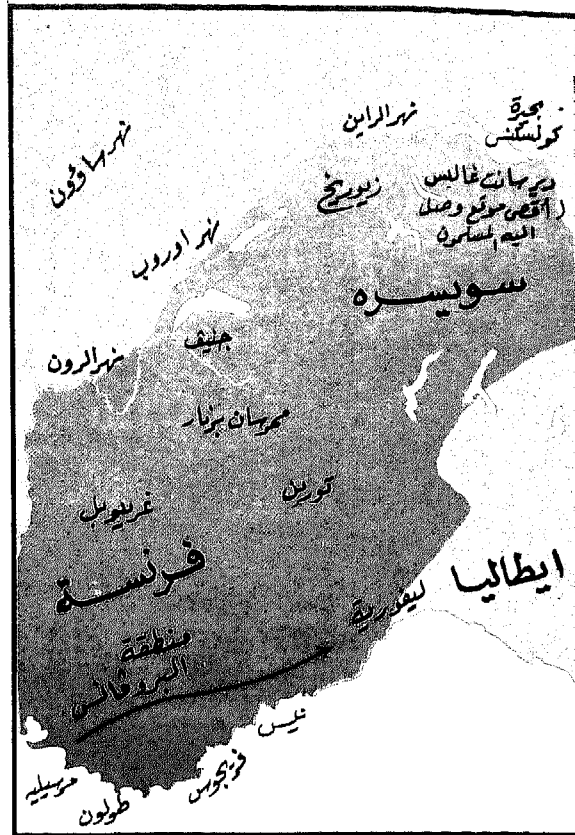 بحيرة
كونسكنس
نهر الراين
نهر ساؤون
دير سان غاليس
( اقصى موقع وصل
اليه المسلمون
زيوريخ
نهر اوروب
سويسره
جنيف
نهر الرون
ممر سان برنار
تورين
غرينوبل
فرنسة
ايطاليا
ليغورية
منطقة
البروفانس
نيس
فريجوس
طولون
مرسيليه